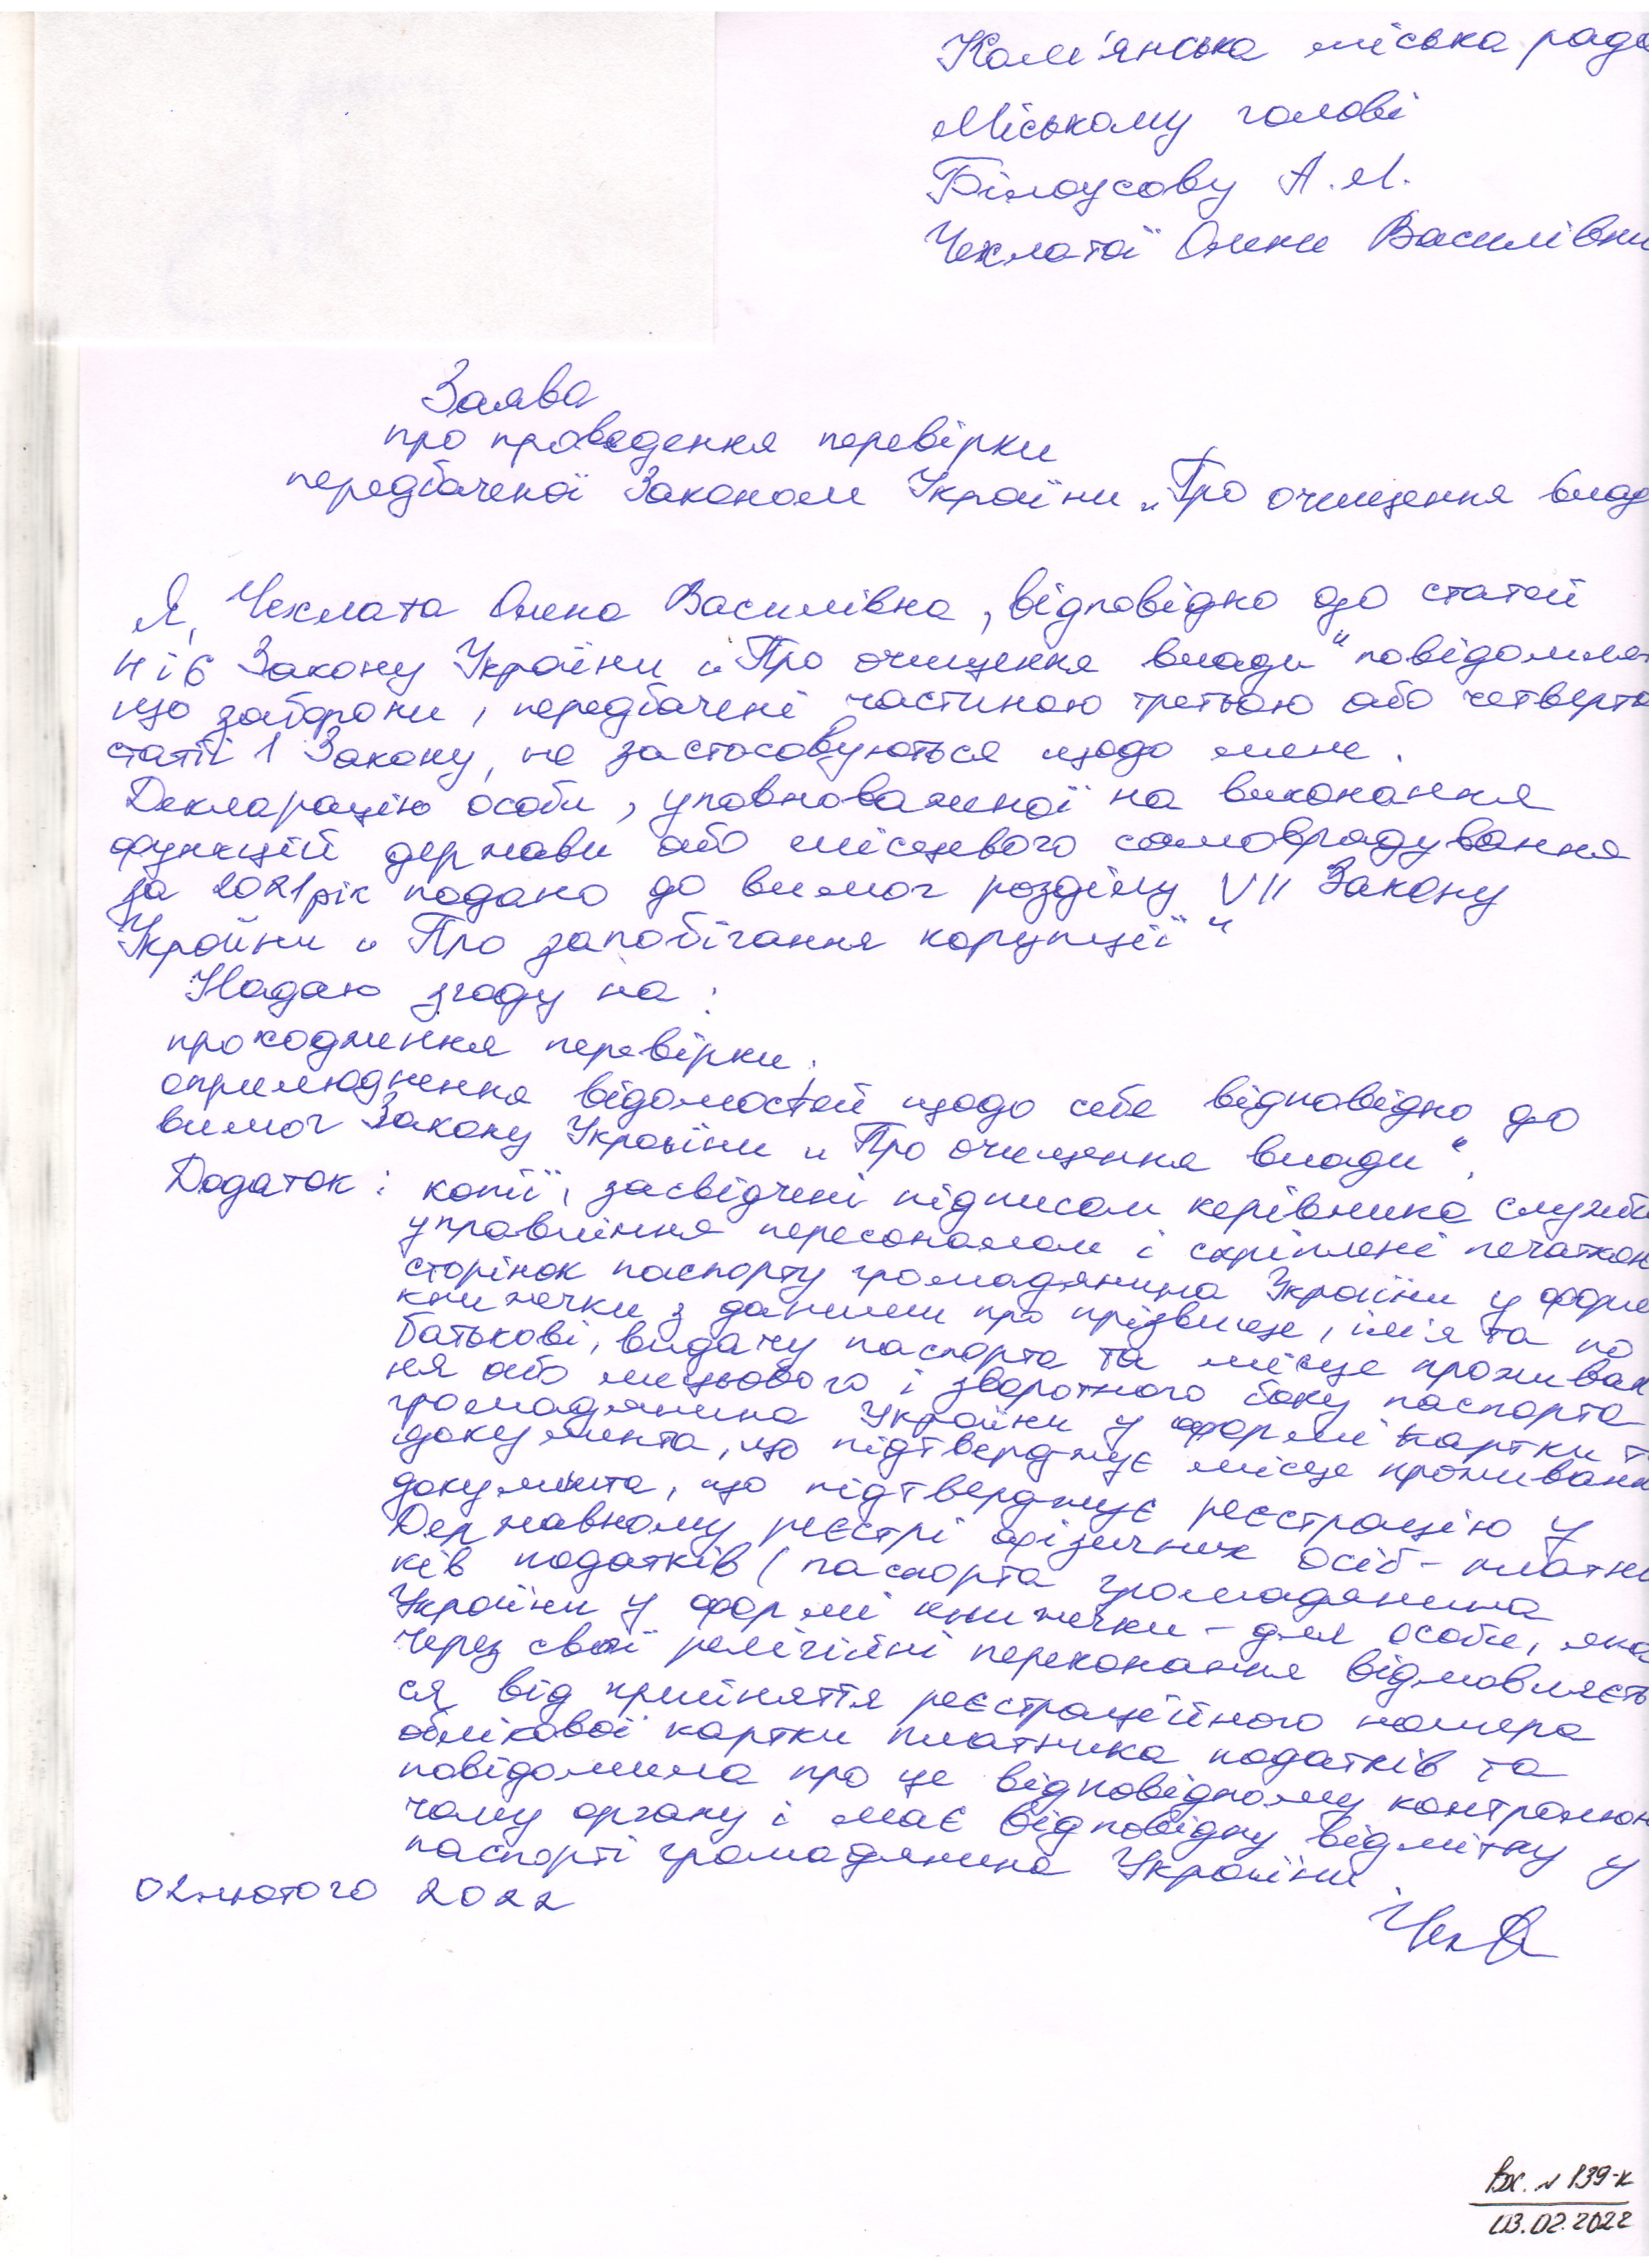 Кам'янська міська рада
Міському голові
Білоусову А.Л.
Чехлатої Олени Василівни
Заява
про проведення перевірки
передбаченої Законом України „Про очищення влад
Я, Чехлата Олена Василівна, відповідно до статей
4 і 6 Закону України „Про очищення влади" повідомля
що заборони, передбачені частиною третьою або четверто
статті 1 Закону, не застосовуються щодо мене.
Декларацію особи, уповноваженої на виконання
функцій держави або місцевого самоврядування
за 2021 рік подано до вимог розділу VII Закону
України „Про запобігання корупції"
Надаю згоду на:
проходження перевірки;
оприлюднення відомостей щодо себе відповідно до
вимог Закону України „Про очищення влади".
Додаток: копії, засвідчені підписом керівника служби
управління персоналом і скріплені печаткою
сторінок паспорту громадянина України у форм
книжечки з даними про прізвище, ім'я та по
батькові, видачу паспорта та місце проживан
ня або лицьового і зворотного боку паспорта
громадянина України у формі картки т
документа, що підтверджує місце проживанн
документа, що підтверджує реєстрацію у
Державному реєстрі фізичних осіб - платни
ків податків (паспорта громадянина
України у формі книжечки - для особи, яка
через свої релігійні переконання відмовляєть
ся від прийняття реєстраційного номера
облікової картки платника податків та
повідомила про це відповідному контролюю
чому органу і має відповідну відмітку у
паспорті громадянина України.
02 лютого 2022
Вх. № 139-к
03.02.2022